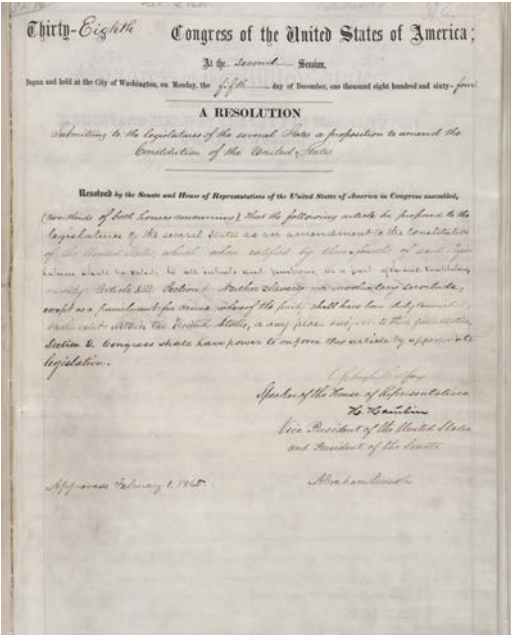 Thirty-Eighth Congress of the United States of America;
At the second Session,
Begun and held at the City of Washington, on Monday, the fifth day of December, one thousand eight hundred and sixty-four
A RESOLUTION
Submitting to the legislatures of the several States a proposition to amend the
Constitution of the United States
Resolved by the Senate and House of Representatives of the United States of America in Congress assembled,
(two-thirds of both houses concurring), That the following article be proposed to the
legislatures of the several States as an amendment to the Constitution
of the United States, which, when ratified by three-fourths of said legis-
latures shall be valid, to all intents and purposes, as a part of the said Constitution,
namely: Article XIII. Section 1. Neither slavery nor involuntary servitude,
except as a punishment for crime whereof the party shall have been duly convicted,
shall exist within the United States, or any place subject to their jurisdiction.
Section 2. Congress shall have power to enforce this article by appropriate
legislation.
Speaker of the House of Representatives
H. Hamlin
Vice President of the United States
and President of the Senate
Approved February 1, 1865.
Abraham Lincoln